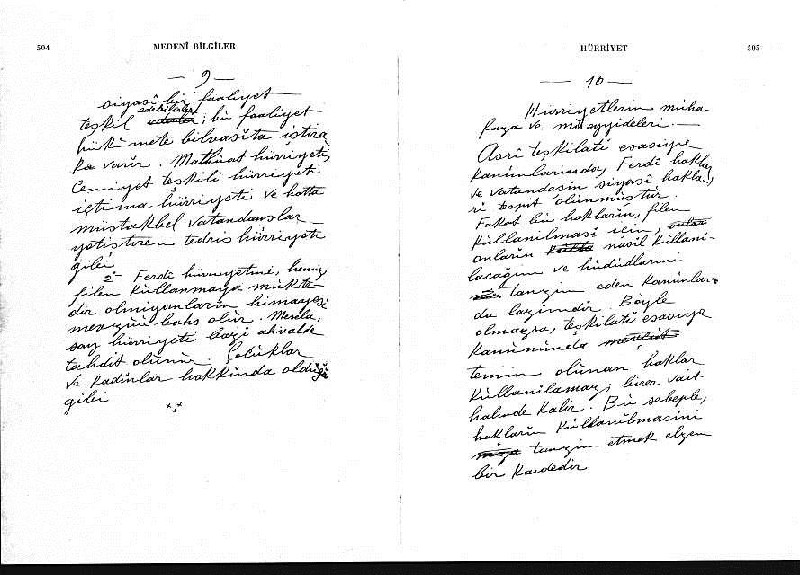 504
MEDENÎ BİLGİLER
— 9 —
siyasî bir faaliyet
teşkil edebilirler; bir faaliyet
hükûmete bilvasıta iştira
ka varır. Matbuat hürriyeti,
Cemiyet teşkili hürriyeti
içtima hürriyeti ve hatta
müstakbel vatandaşlar
yetiştiren tedris hürriyeti
gibi
2° Ferdî hürriyetini,
filen kullanmaya mukte
dir olmiyanların himayesi
mevzuu bahs olur. Mesela;
say hürriyeti bazi ahvalde
tahdit olunur. Çocuklar
ve kadınlar hakkında olduğu
gibi
HÜRRİYET
505
— 10 —
Hürriyetlerin muha-
faza ve müeyyideleri.—
Asrî teşkilatı esasiye
kanunlarında, Ferdî haklar
ve vatandaşın siyasî hakla-
rı tespit olunmuştur.
Fakat bu hakların, filen
kullanılması için,
onların nasıl kullanı-
lacağını ve hudûdlarını
tanzim eden kanunlar
da lazımdır. Böyle
olmazsa, teşkilatı esasiye
kanununda
temin olunan haklar
kullanılamaz;
halinde kalır. Bu sebeple,
hakların kullanılmasını
tanzim etmek elzem
bir kaidedir